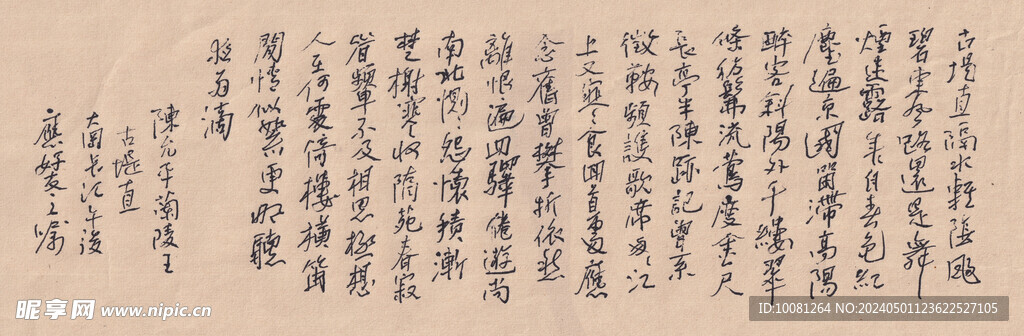 古堤直隔水輕陰颺
碧東風路還是舞
煙迷露柔自春色紅
塵遍京國留滯高陽
醉客斜陽外千縷翠
條彷彿流鶯度金尺
長亭半陳跡記曾系
征鞍頻護歌席匆匆江
上又寒食回首處應
念舊曾攀折依然
離恨遍四驛倦遊尚
南北惻惻怨懷積漸
楚榭寒收隋苑春寂
眉顰不及相思極想
人在何處倚樓橫笛
閒情似絮更那聽
夜雨滴
陳允平蘭陵王
古堤直
應好友之嘱
昵享网 www.nipic.cn
ID:10081264 NO:20240501123622527105